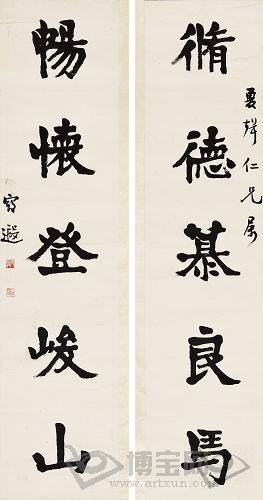 夏聲仁兄屬
脩德慕良馬
暢懷登峻山
遐
博宝
www.artxun.com